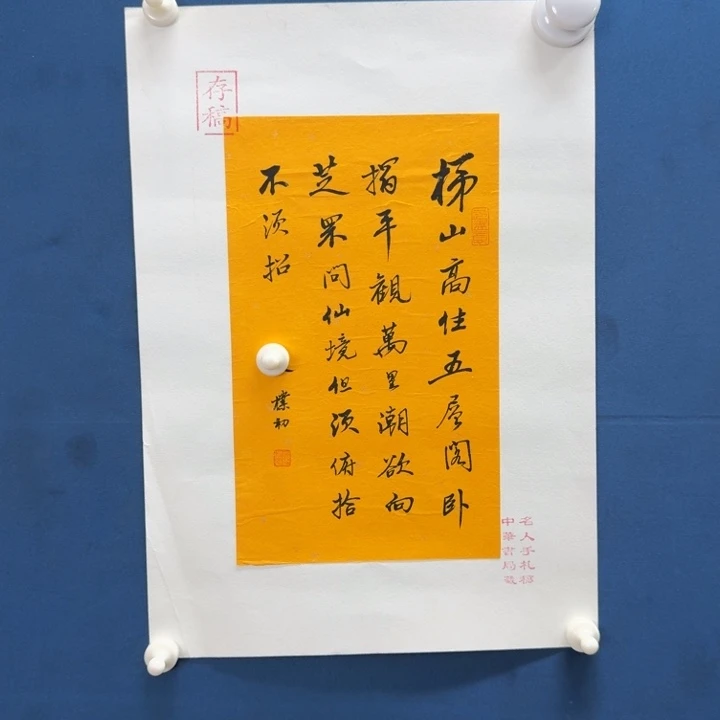 存稿
梯山高住五層閣臥
榻平觀萬里潮欲向
芝罘問仙境但須俯拾
不須招
樸初
名人手札稿
中華書局藏